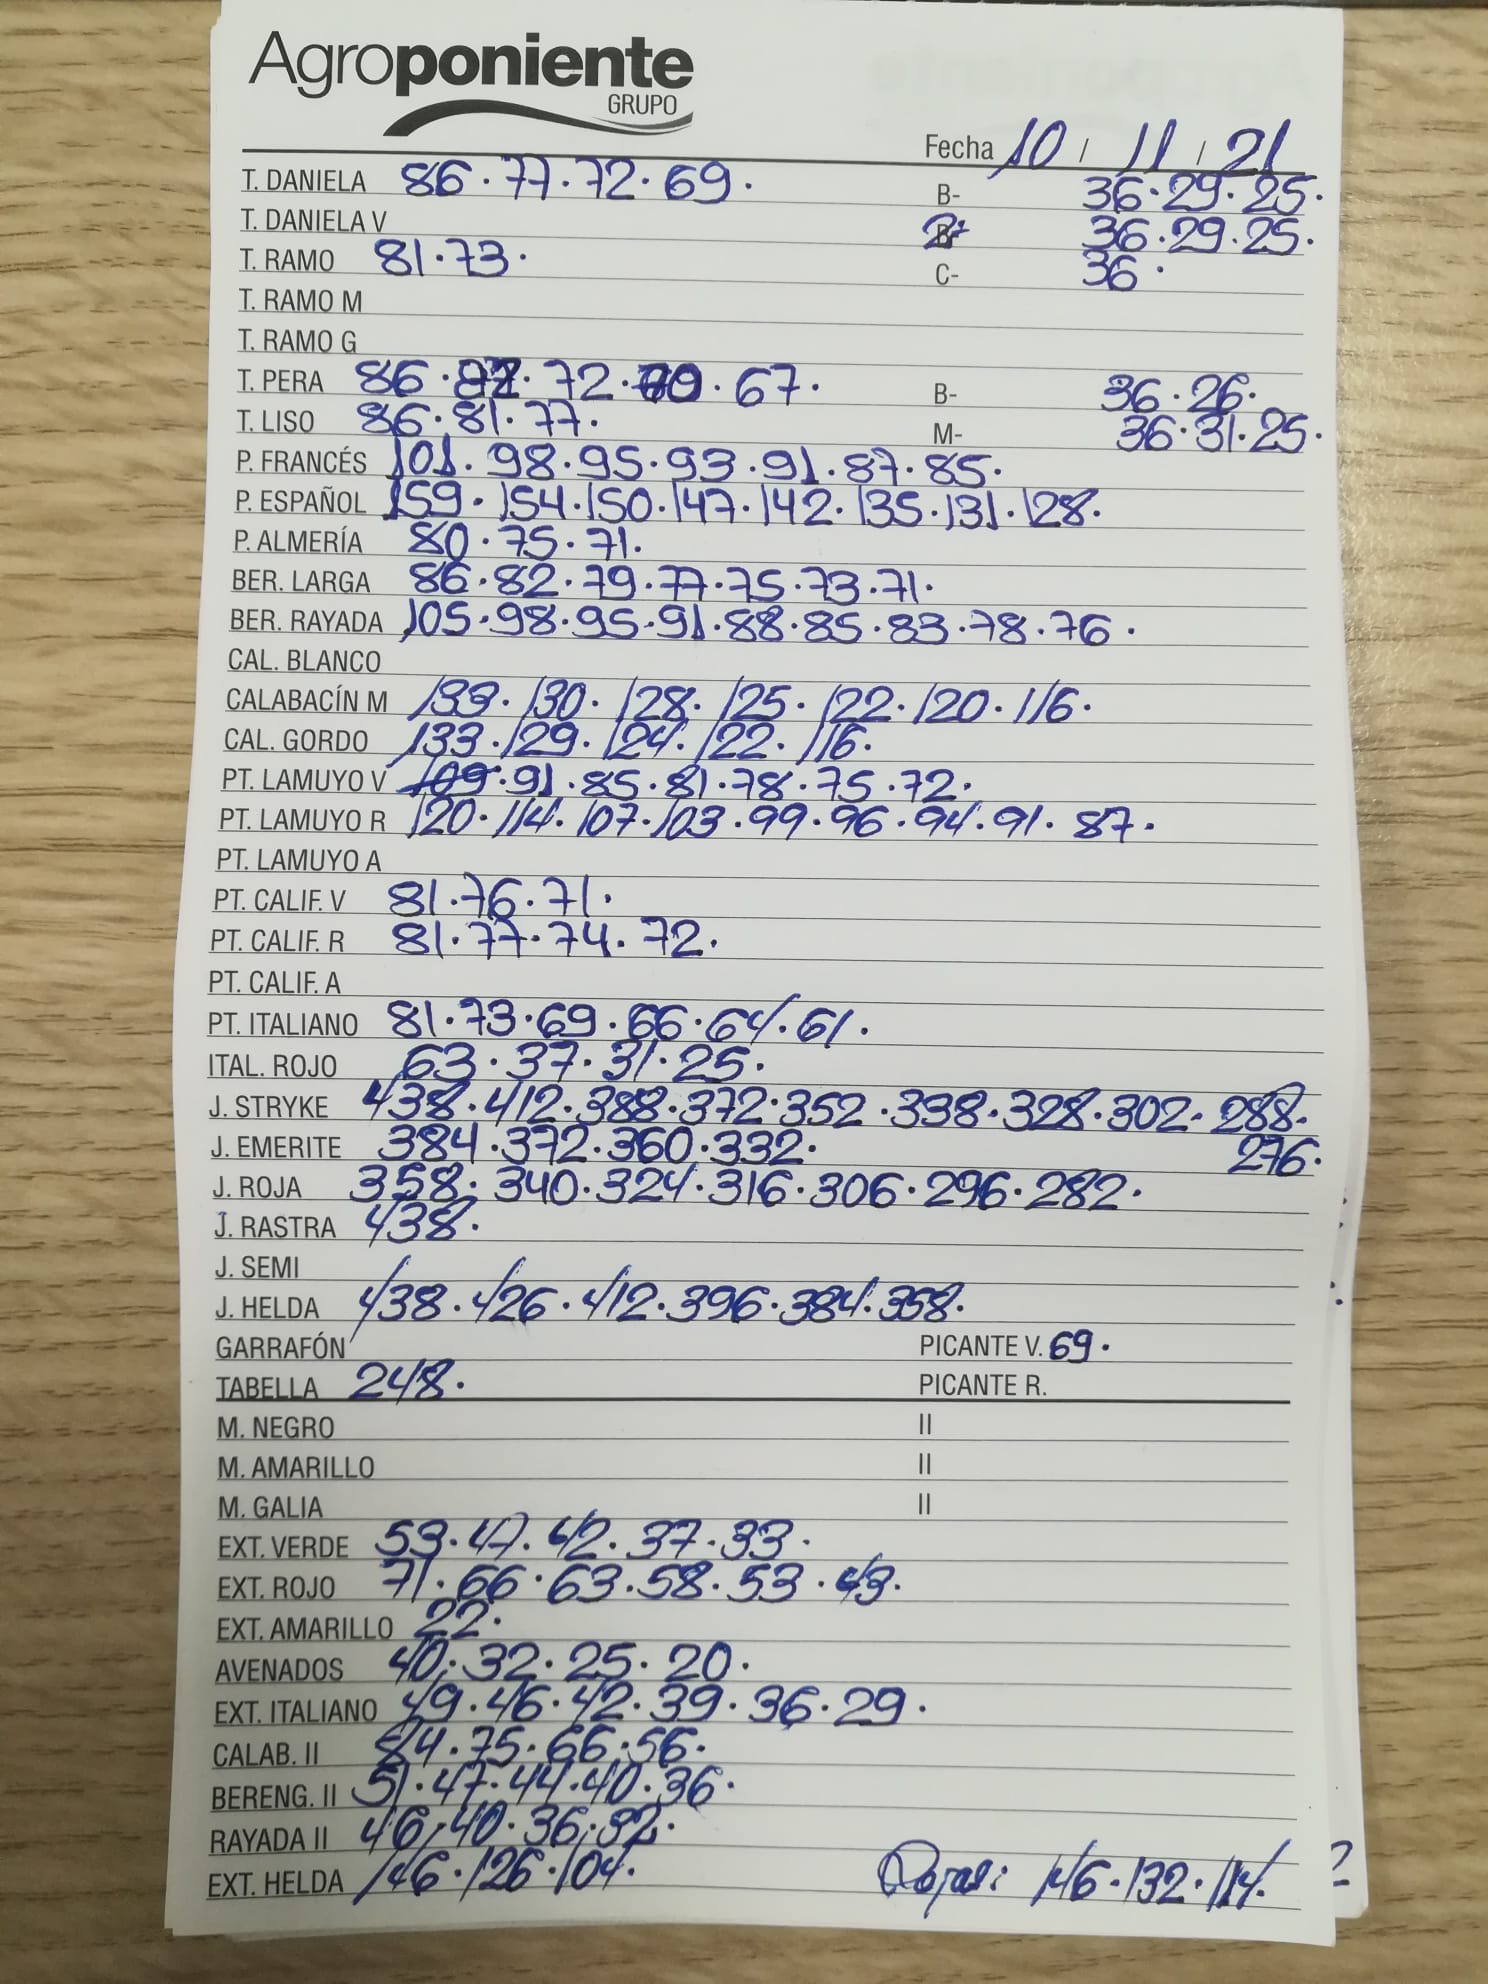 Agroponiente
GRUPO
Fecha 10 / 11 / 21
T. DANIELA 86·77·72·69· B- 36·29·25·
T. DANIELA V 36·29·25·
T. RAMO 81·73· C- 36·
T. RAMO M
T. RAMO G
T. PERA 86· 72· 67· B- 36·26·
T. LISO 86·81·77· M- 36·31·25·
P. FRANCÉS 101·98·95·93·91·87·85·
P. ESPAÑOL 159·154·150·147·142·135·131·128·
P. ALMERÍA 80·75·71·
BER. LARGA 86·82·79·77·75·73·71·
BER. RAYADA 105·98·95·91·88·85·83·78·76·
CAL. BLANCO
CALABACÍN M 133·130·128·125·122·120·116·
CAL. GORDO 133·129·124·122·116·
PT. LAMUYO V 109·91·85·81·78·75·72·
PT. LAMUYO R 120·114·107·103·99·96·94·91·87·
PT. LAMUYO A
PT. CALIF. V 81·76·71·
PT. CALIF. R 81·77·74·72·
PT. CALIF. A
PT. ITALIANO 81·73·69·66·64·61·
ITAL. ROJO 63·37·31·25·
J. STRYKE 438·412·388·372·352·338·328·302·288·
276·
J. EMERITE 384·372·360·332·
J. ROJA 358·340·324·316·306·296·282·
J. RASTRA 438·
J. SEMI
J. HELDA 438·426·412·396·384·358·
GARRAFÓN PICANTE V. 69·
TABELLA 248· PICANTE R.
M. NEGRO II
M. AMARILLO II
M. GALIA II
EXT. VERDE 53·47·42·37·33·
EXT. ROJO 71·66·63·58·53·43·
EXT. AMARILLO 22·
AVENADOS 40·32·25·20·
EXT. ITALIANO 49·46·42·39·36·29·
CALAB. II 84·75·66·56·
BERENG. II 51·47·44·40·36·
RAYADA II 46·40·36·32·
EXT. HELDA 146·126·104· Rojas: 146·132·114·